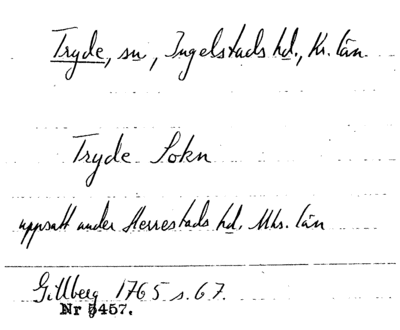 Tryde, sn, Ingelstads hd., Kr. län.
Tryde Sokn
uppsatt under Herrestads hd. Mhs. län
Gillberg 1765 s. 67.
Nr 5457.